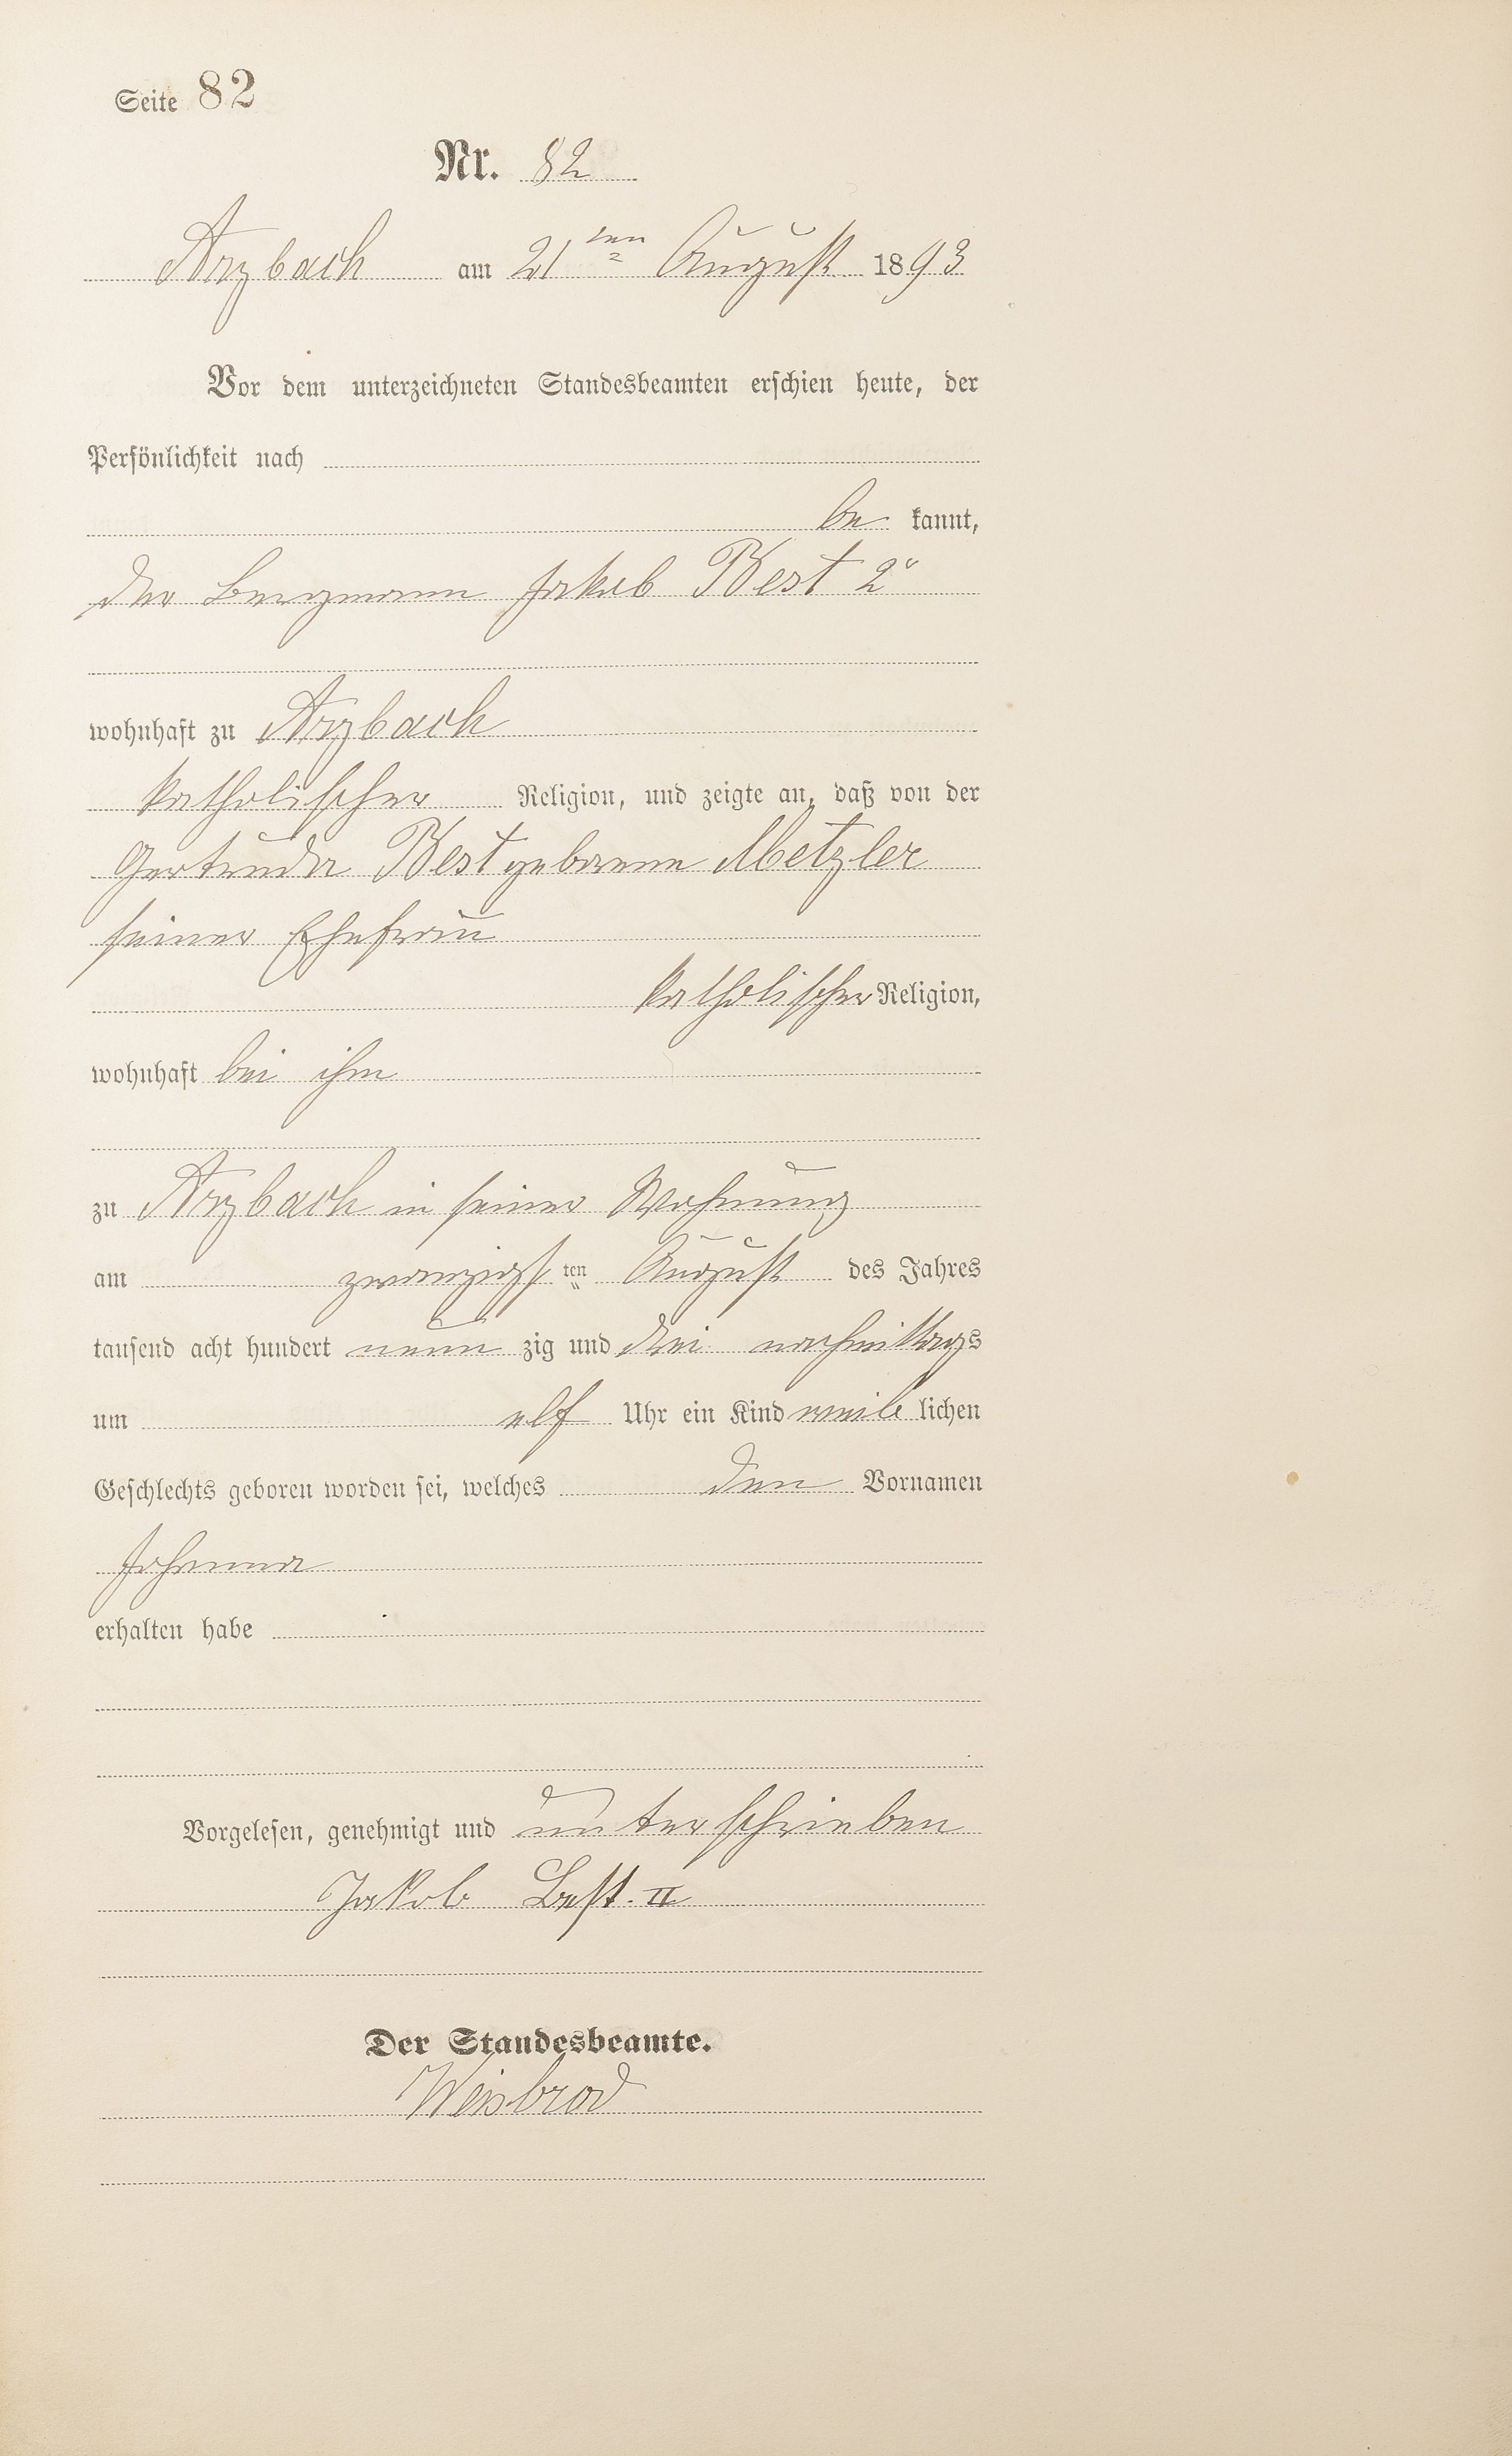 Seite 82
Nr. 82
Arzbach am 21ten August 1893
Vor dem unterzeichneten Standesbeamten erschien heute, der
Persönlichkeit nach
be kannt,
der Bergmann Jakob Best 2r
wohnhaft zu Arzbach
katholischer Religion, und zeigte an, daß von der
Gertruda Best geborene Metzler
seiner Ehefrau
katholischer Religion,
wohnhaft bei ihm
zu Arzbach in seiner Wohnung
am zwanzigsten August des Jahres
tausend acht hundert neun zig und drei nachmittags
um elf Uhr ein Kind weib lichen
Geschlechts geboren worden sei, welches den Vornamen
Johanna
erhalten habe
Vorgelesen, genehmigt und unterschrieben
Jakob Best. II
Der Standesbeamte.
Weisbrod